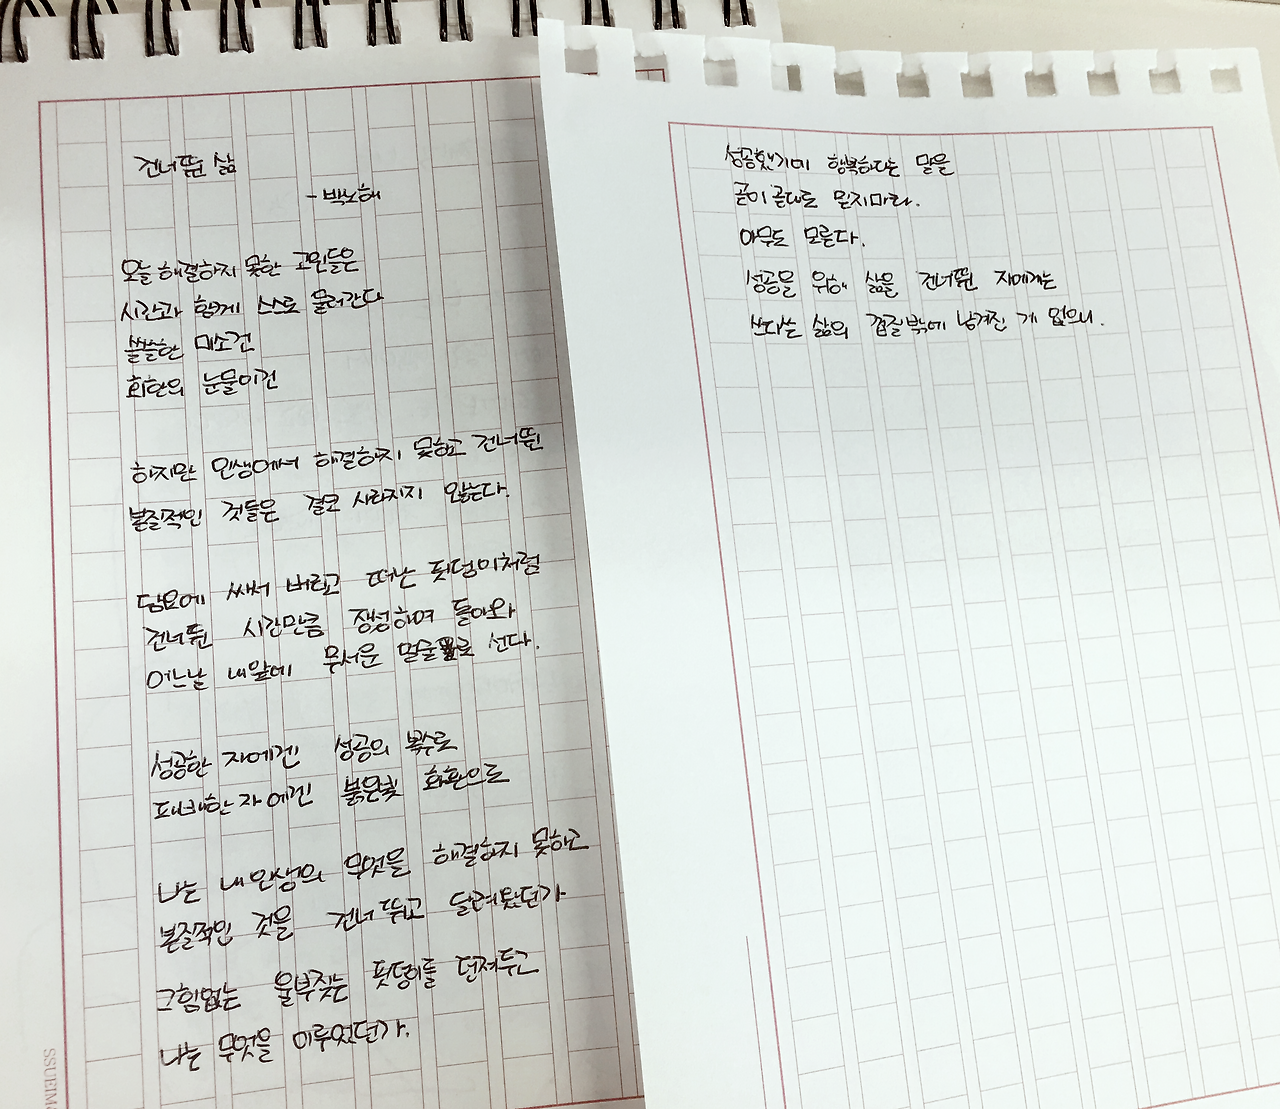 건너뛴 삶
- 박노해
오늘 해결하지 못한 고민들은
시간과 함께 스스로 물러간다
쓸쓸한 미소건
회한의 눈물이건
하지만 인생에서 해결하지 못하고 건너뛴
본질적인 것들은 결코 사라지지 않는다.
담요에 싸서 버리고 떠난 핏덩이처럼
건너뛴 시간만큼 장성하여 돌아와
어느날 내앞에 무서운 얼굴로 선다.
성공한 자에겐 성공의 복수로
패배한자에겐 붉은빛 회환으로
나는 내인생의 무엇을 해결하지 못하고
본질적인 것을 건너뛰고 달려왔던가
그힘없는 울부짖는 핏덩이를 던져두고
나는 무엇을 이루었던가.
성공했기에 행복하다는 말을
곧이 곧대로 믿지마라.
아무도 모른다.
성공을 위해 삶을 건너뛴 자에게는
쓰다쓴 삶의 껍질밖에 남겨진 게 없으니.
SSUEIM